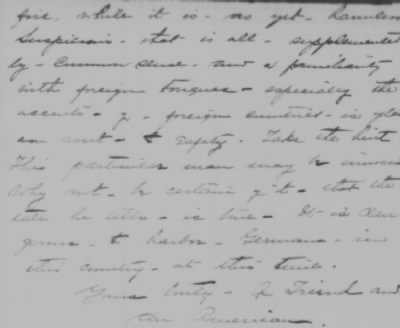 fire, while it is - as yet - harmless
Suspicion - that is all - supplemented
by - common sense - and a familiarity
with foreign tongues - especially the
accents - of - foreign countries - is
an asset - to safety. Take the hint.
This particular man may be
Why not - be certain of it - that the
he tells - is true - It is
- to harbor - Germans - in
this country - at this time.
Yours truly - A Friend and
an American.